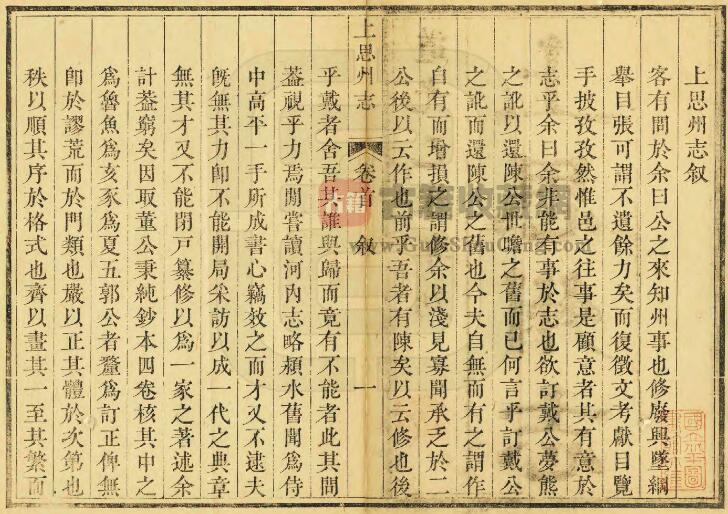 上思州志叙
客有問於余曰公之來知州事也修廢興墜綱
舉目張可謂不遺餘力矣而復徵文考獻日覽
手披孜孜然惟邑之往事是顧意者其有意於
志乎余曰余非能有事於志也欲訂戴公夢熊
之訛以還陳公世瞻之舊而已何言乎訂戴公
之訛而還陳公之舊也今夫自無而有之謂作
自有而增損之謂修余以淺見寡聞承乏於二
公後以云作也前乎吾者有陳矣以云修也後
上思州志
卷首
敘
一
乎戴者舍吾其誰與歸而竟有不能者此其間
葢視乎力焉聞嘗讀河內志略潁水舊聞為侍
中高平一手所成書心竊效之而才又不逮夫
旣無其力卽不能開局采訪以成一代之典章
無其才又不能閉戶纂修以為一家之著述余
計葢窮矣因取董公秉純鈔本四卷核其中之
為魯魚為亥豕為夏五郭公者釐為訂正俾無
卽於謬荒而於門類也嚴以正其體於次第也
秩以順其序於格式也齊以畫其一至其繁而
古籍
www.GuJiShuCang.com